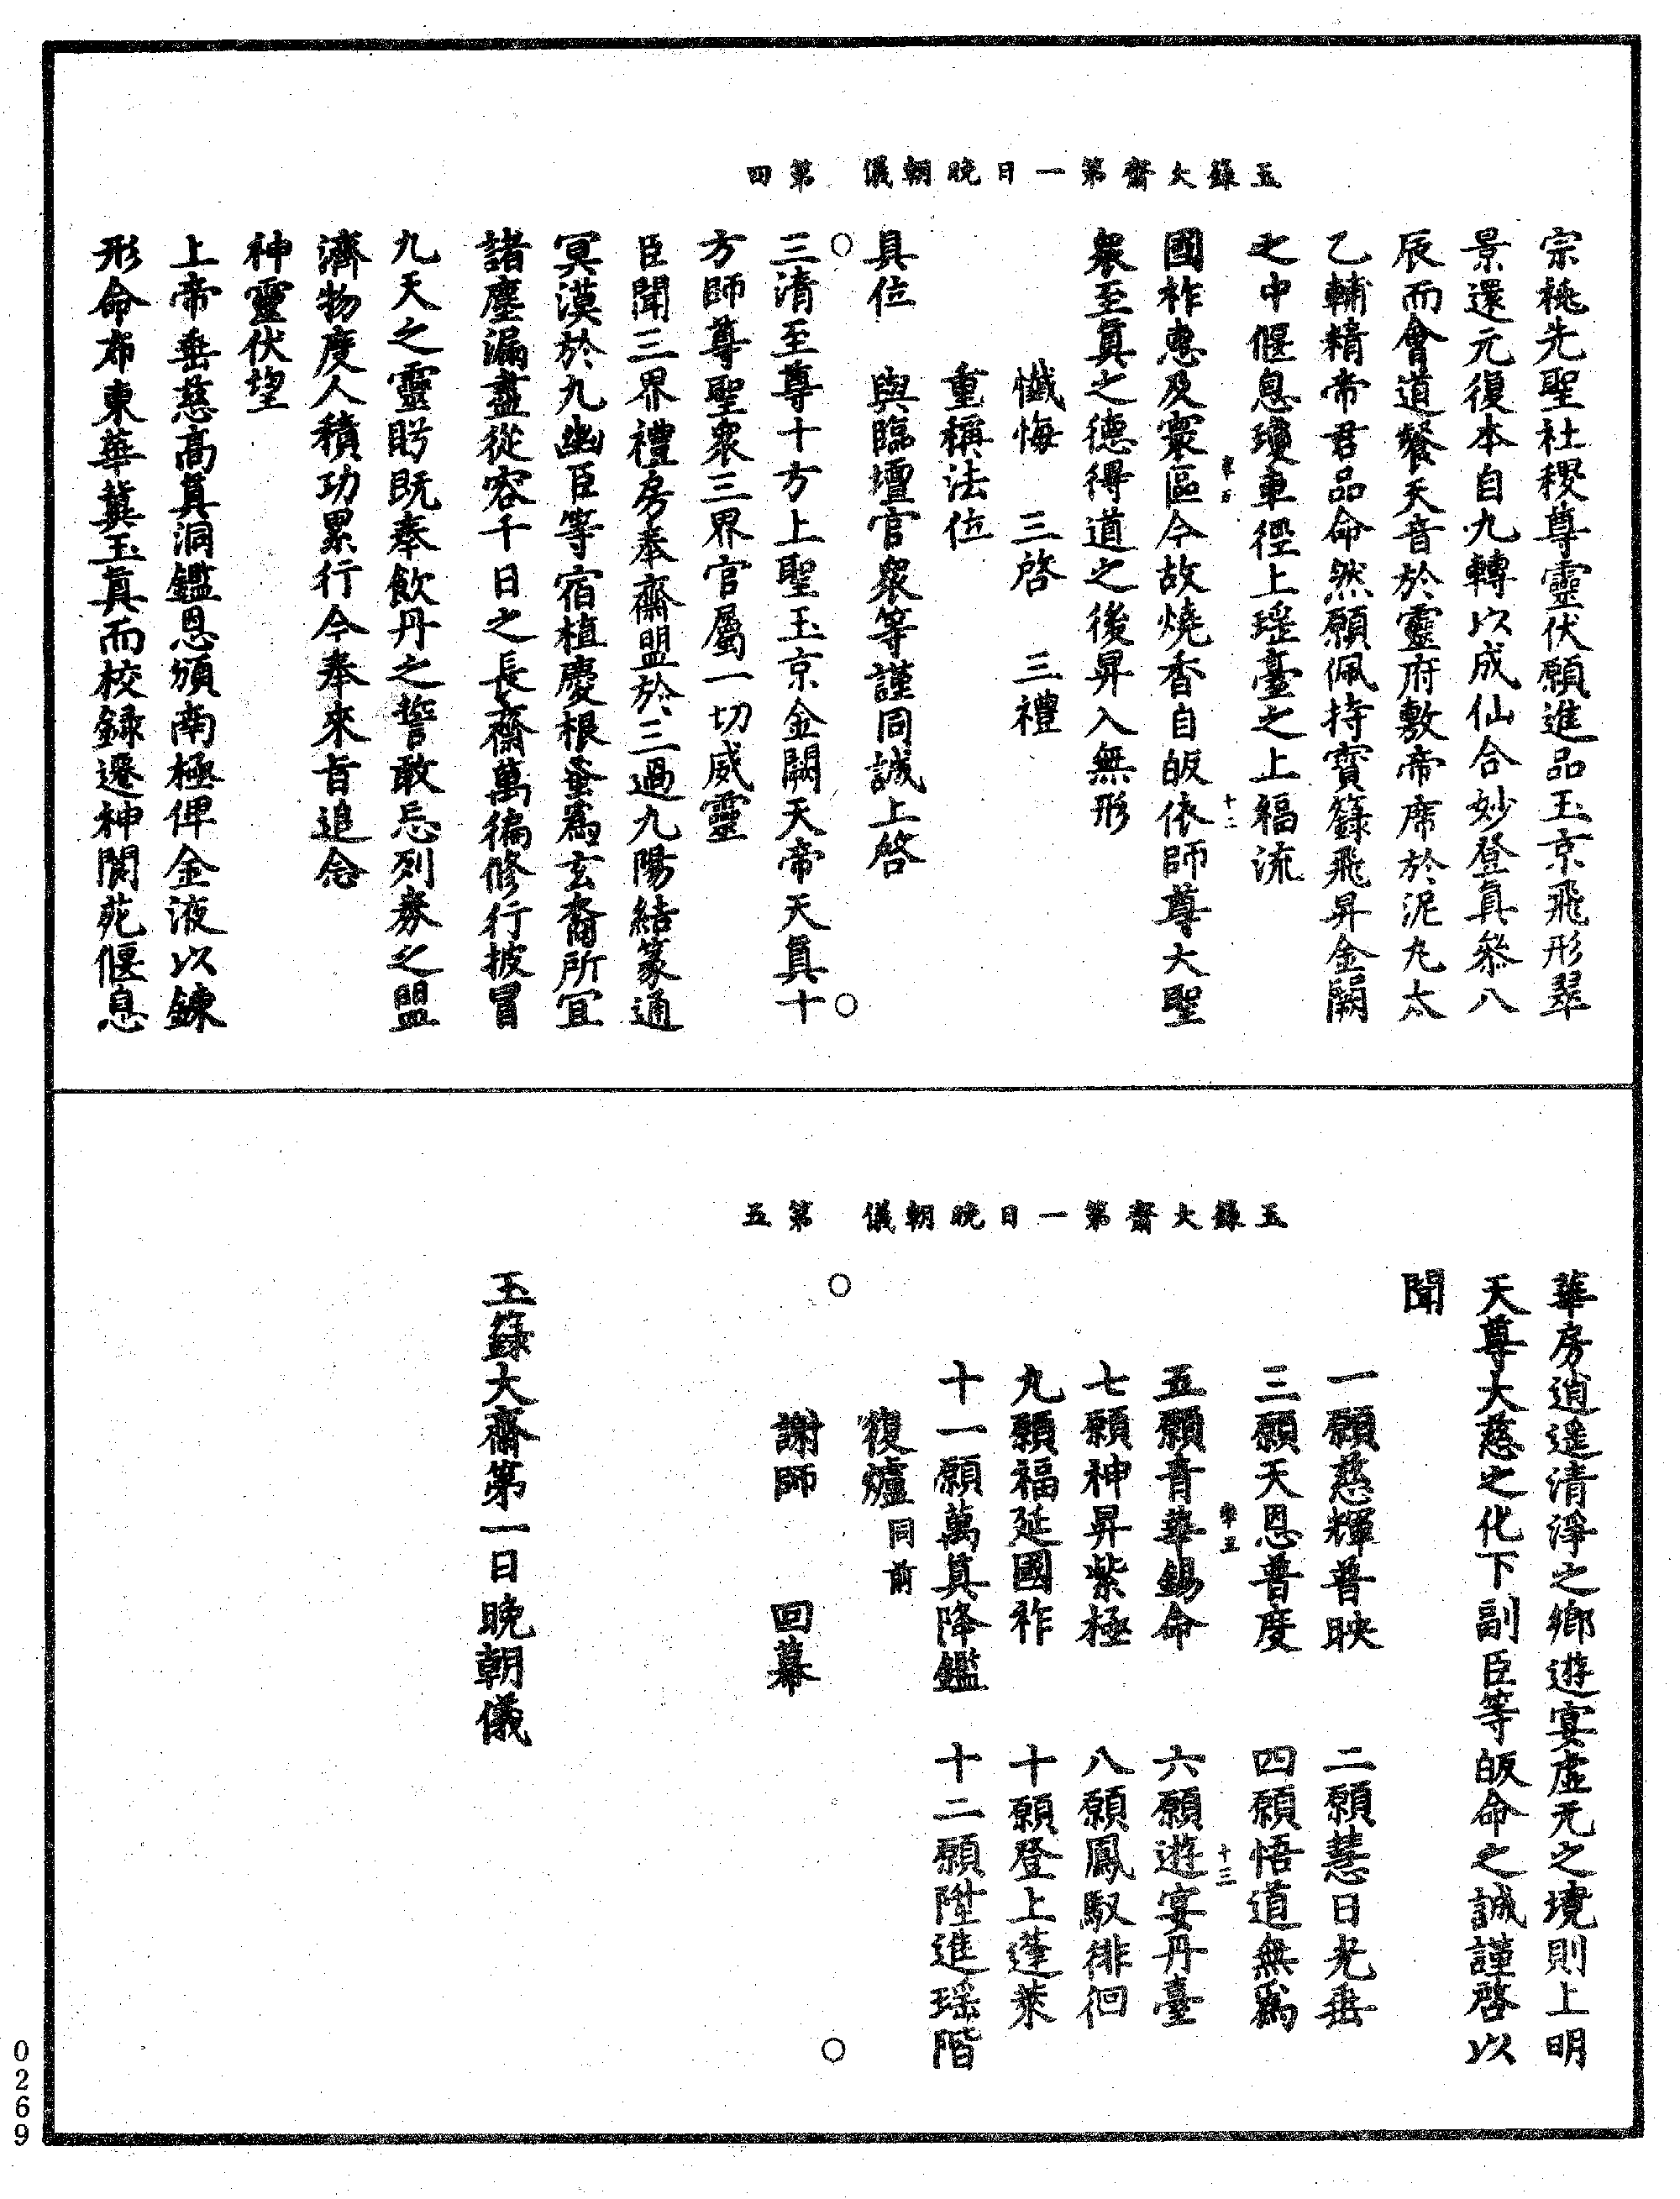 玉籙大齋第一日晚朝儀　第四
宗祧先聖社稷尊靈伏願進品玉京飛形翠
景還元復本自九轉以成仙合妙登真叅八
辰而會道餐天音於靈府敷帝席於泥丸太
乙輔精帝君品命然願佩持寶籙飛昇金闕
之中偃息瓊車徑上瑤臺之上福流
十二
國祚惠及寰區今故燒香自皈依師尊大聖
衆至真之德得道之後昇入無形
懺悔　三啓　三禮
重稱法位
具位　與臨壇官衆等謹同誠上啓
三清至尊十方上聖玉京金闕天帝天真十
方師尊聖衆三界官屬一切威靈
臣聞三界禮房奉齋盟於三過九陽結篆通
冥漠於九幽臣等宿植慶根蚤爲玄裔所宜
諸塵漏盡從容千日之長齋萬徧修行披冒
九天之靈眄既奉飲丹之誓敢忘列券之盟
濟物度人積功累行今奉來旨追念
神靈伏望
上帝垂慈高真洞鑑恩頒南極俾金液以鍊
形命布東華冀玉真而校錄遷神閬苑偃息
玉籙大齋第一日晚朝儀　第五
華房逍遥清淨之鄉遊宴虛无之境則上明
天尊大慈之化下副臣等皈命之誠謹啓以
聞
一願慈輝普映　二願慧日光垂
三願天恩普度　四願悟道無爲
十三
五願青華錫命　六願遊宴丹臺
七願神昇紫極　八願鳳馭徘徊
九願福延國祚　十願登上蓬萊
十一願萬真降鑑　十二願陞進瑤階
復爐同前
謝師　回幕
玉籙大齋第一日晚朝儀
0269